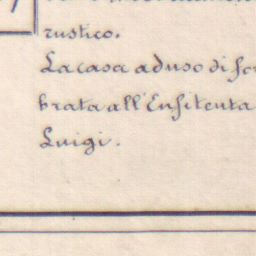 rustico.
La casa ad uso di for
brata all'Enfitenta
Luigi.